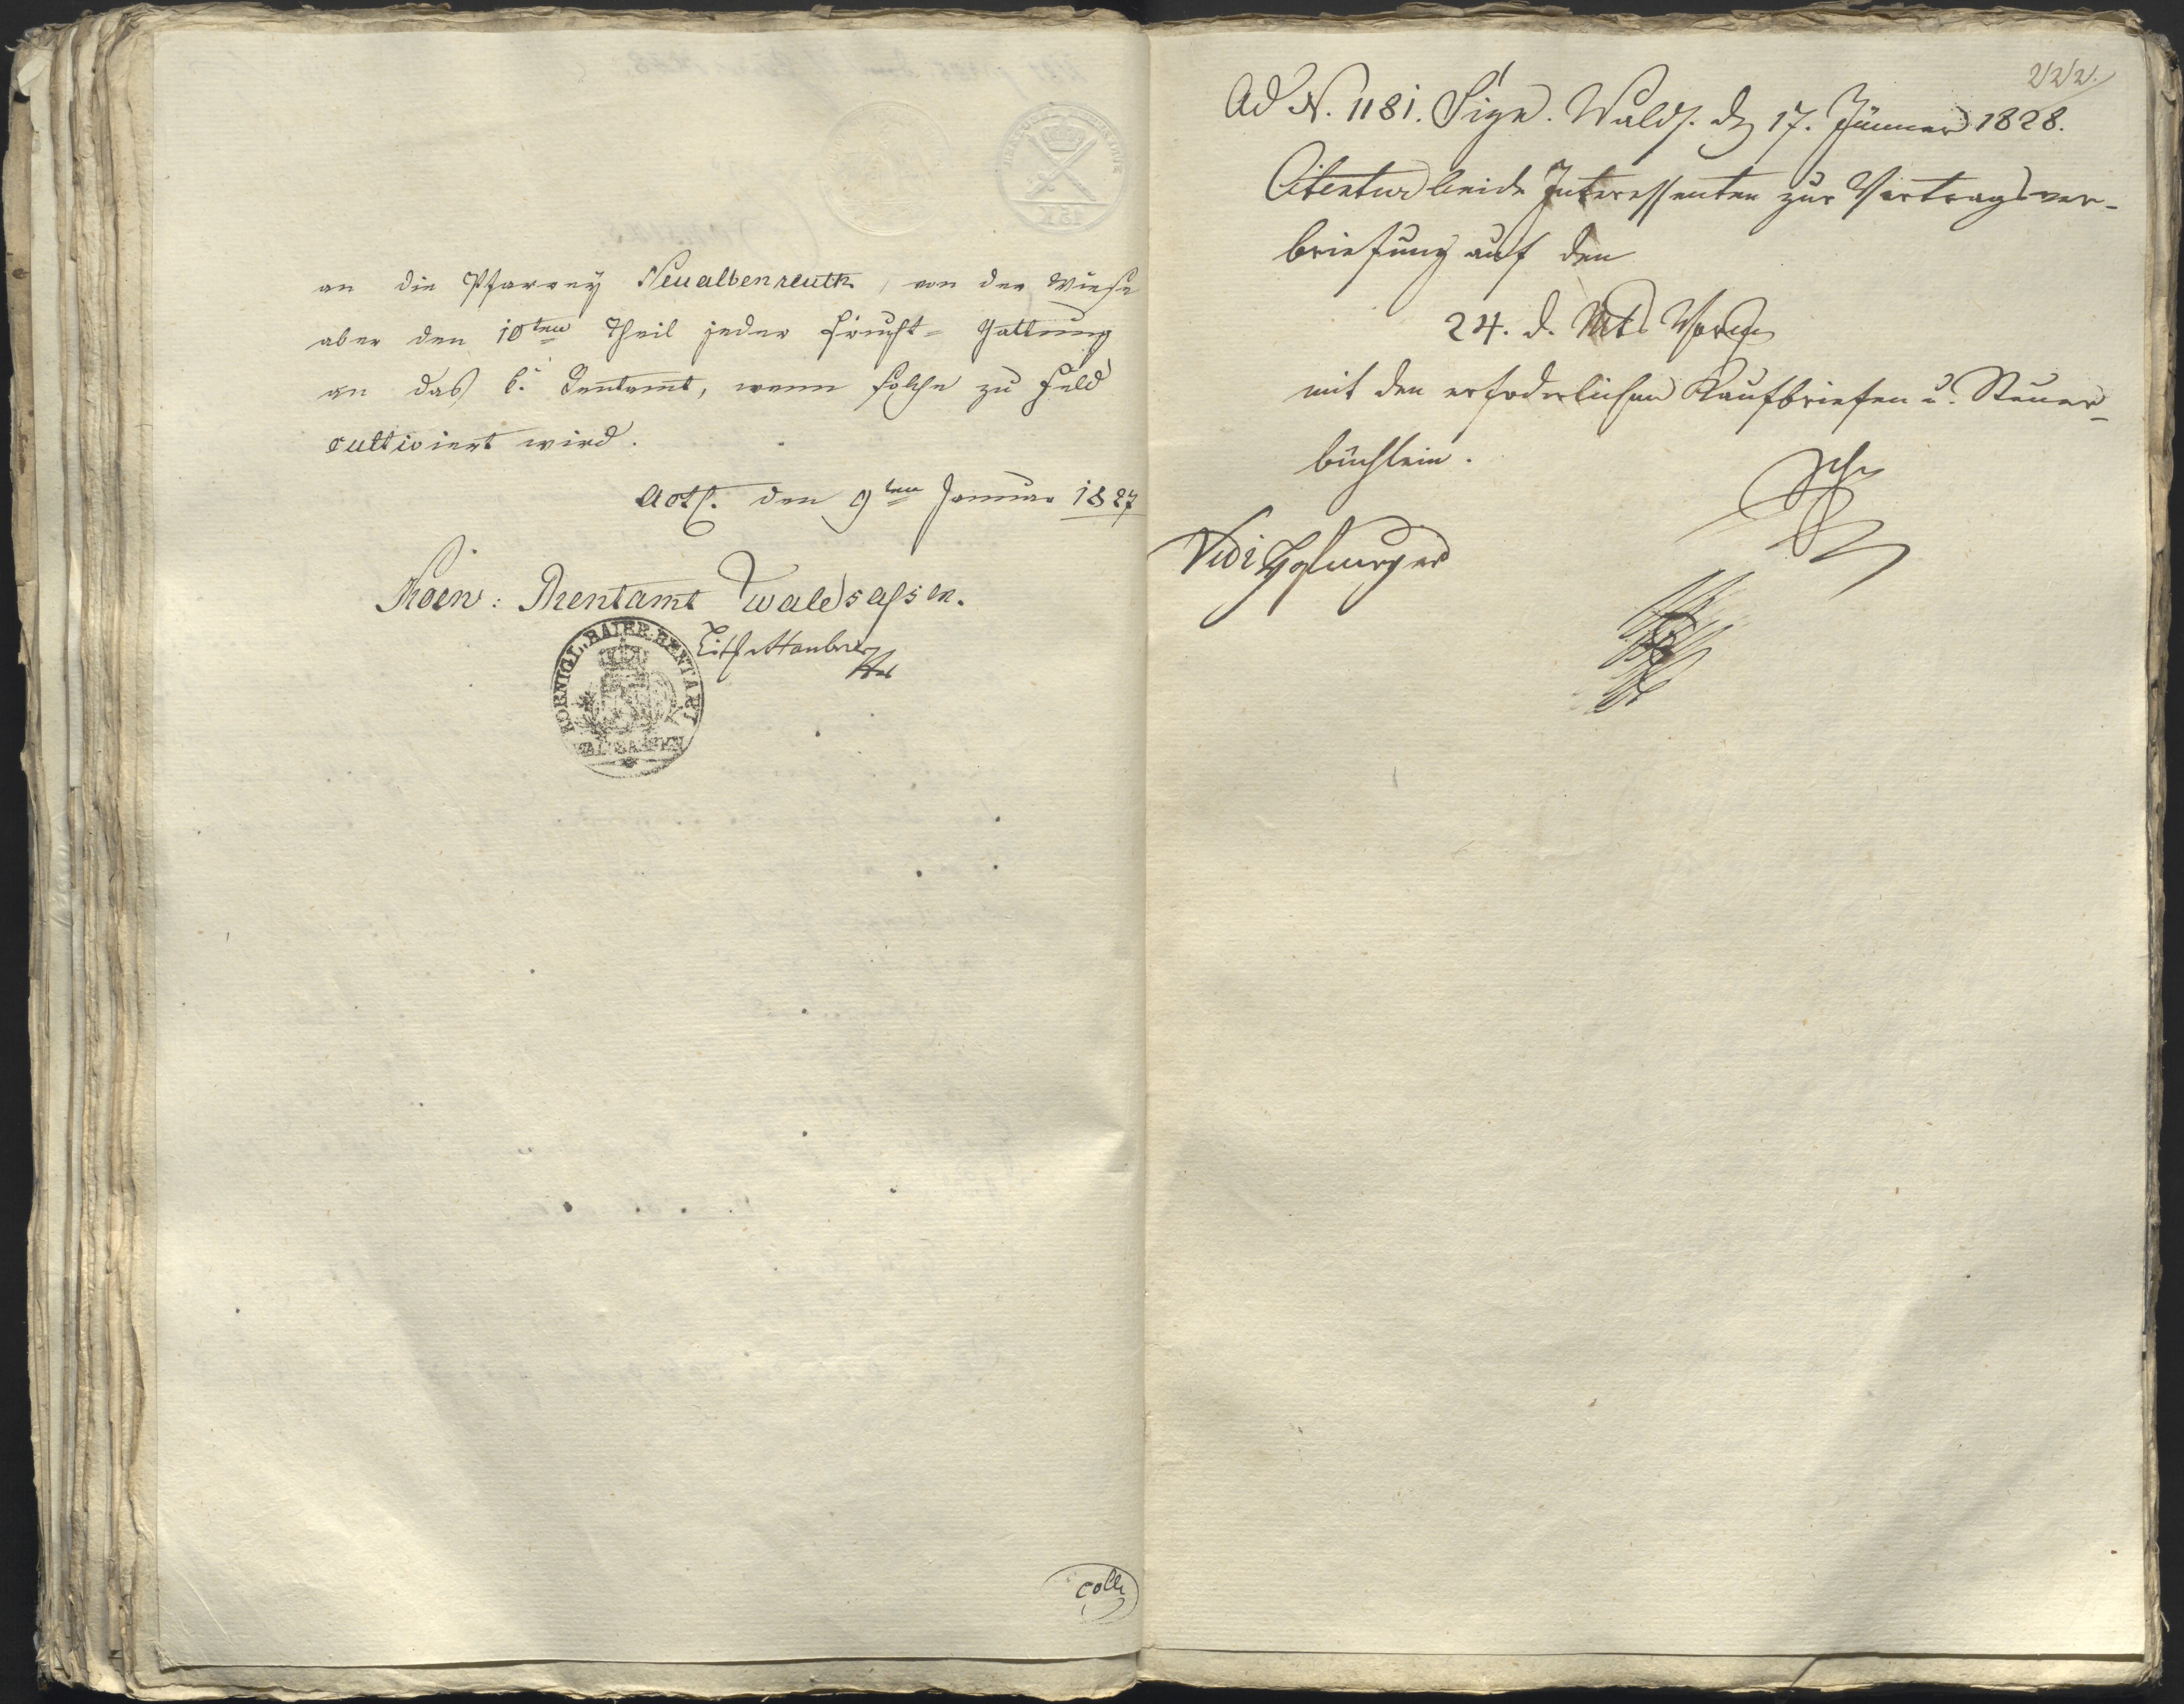 an die Pfarrey Neualbenreuth, von der Wiese
aber den 10ten Theil jeder Frucht= Gattung
an das k. Rentamt, wenn solche zu Feld
cultiviert wird.
Act. den 9ten Januar 1827
Koen: Rentamt Waldsassen.
KOENIGL. BAIER. RENTAMT
WALDSASSEN
coll
222.
Ad N. 1181. Sign. Walds. den 17. Jänner 1828.
Citentur beide Interessenten zur Vertragsver-
briefung auf den
24. d. Mts. Vorm.
mit den erforderlichen Kaufbriefen u. Steuer-
büchlein.
Vidi